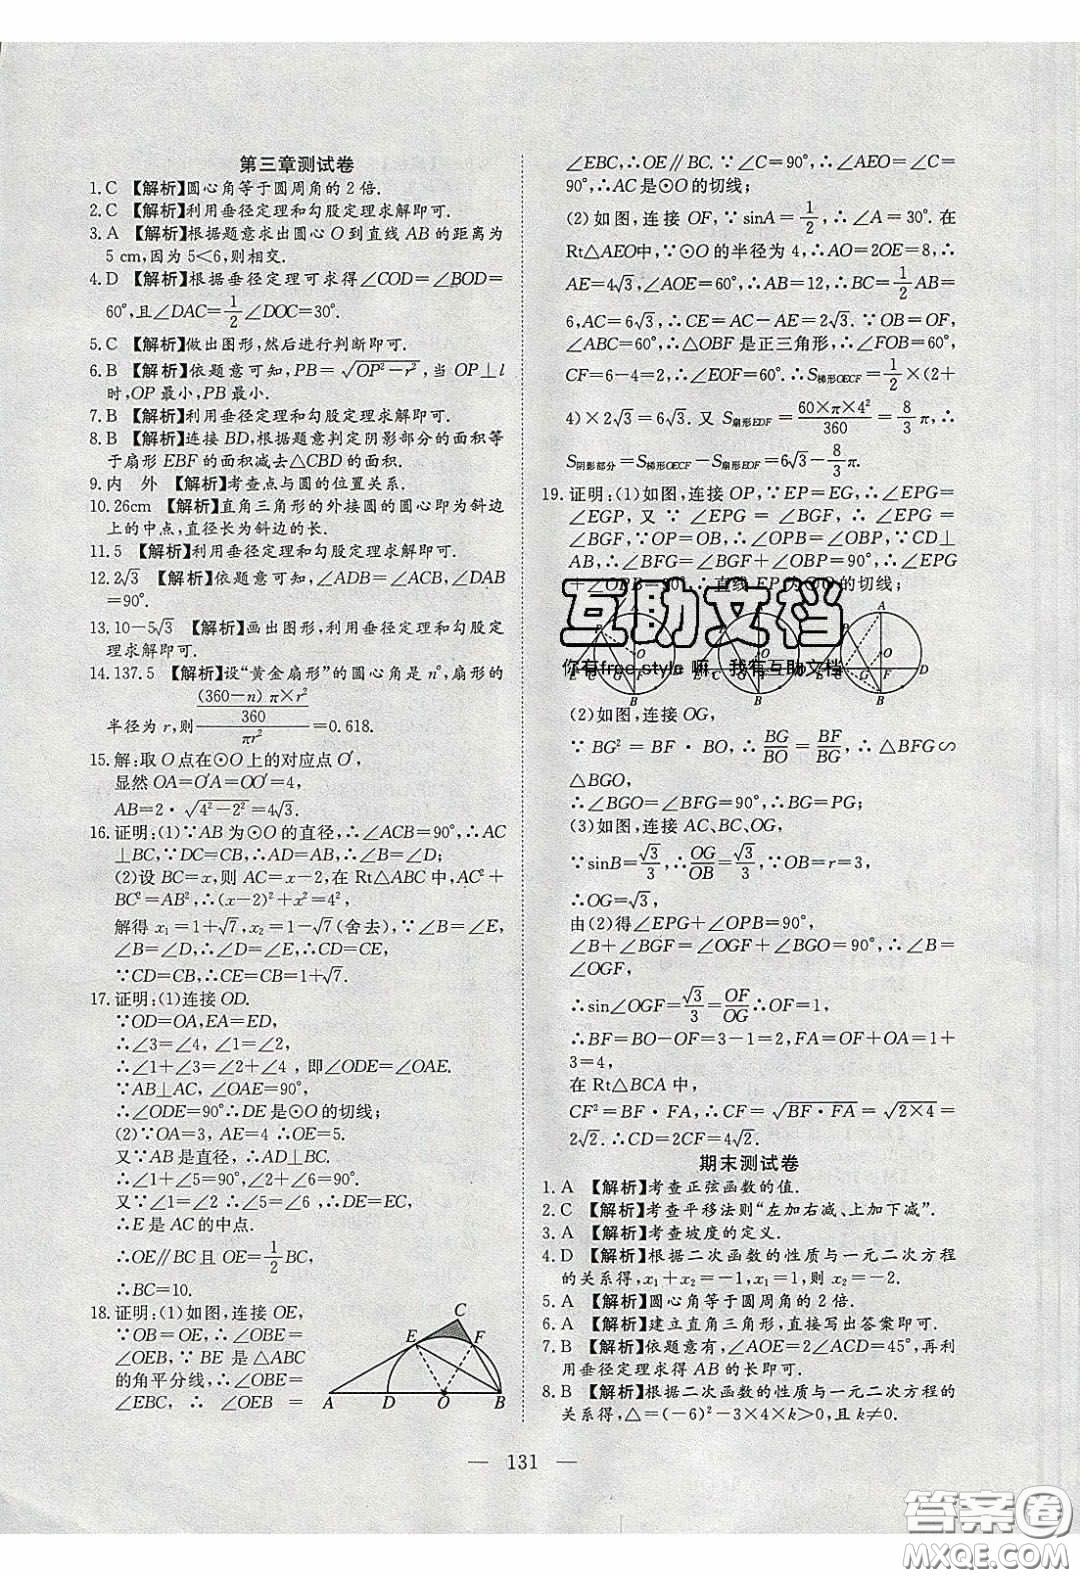 第三章测试卷
1. C 【解析】圆心角等于圆周角的 2 倍.
2. C 【解析】利用垂径定理和勾股定理求解即可.
3. A 【解析】根据题意求出圆心 O 到直线 AB 的距离为
5 cm,因为 5<6,则相交.
4. D 【解析】根据垂径定理可求得∠COD=∠BOD=
60°,且∠DAC=1/2∠DOC=30°.
5. C 【解析】做出图形,然后进行判断即可.
6. B 【解析】依题意可知,PB=√(OP²−r²),当 OP⊥l
时,OP 最小,PB 最小.
7. B 【解析】利用垂径定理和勾股定理求解即可.
8. B 【解析】连接 BD,根据题意判定阴影部分的面积等
于扇形 EBF 的面积减去△CBD 的面积.
9. 内 外 【解析】考查点与圆的位置关系.
10. 26cm 【解析】直角三角形的外接圆的圆心即为斜边
上的中点,直径长为斜边的长.
11. 5 【解析】利用垂径定理和勾股定理求解即可.
12. 2√3 【解析】依题意可知,∠ADB=∠ACB,∠DAB
=90°.
13. 10−5√3 【解析】画出图形,利用垂径定理和勾股定
理求解即可.
14. 137.5 【解析】设“黄金扇形”的圆心角是 n°,扇形的
半径为 r,则((360−n)π×r²/360)/(πr²)=0.618.
15. 解:取 O 点在⊙O 上的对应点 O′,
显然 OA=O′A=OO′=4,
AB=2·√(4²−2²)=4√3.
16. 证明:(1)∵AB 为⊙O 的直径,∴∠ACB=90°,∴AC
⊥BC,∵DC=CB,∴AD=AB,∴∠B=∠D;
(2)设 BC=x,则 AC=x−2,在 Rt△ABC 中,AC²+
BC²=AB²,∴(x−2)²+x²=4²,
解得 x₁=1+√7,x₂=1−√7(舍去),∵∠B=∠E,
∠B=∠D,∴∠D=∠E,∴CD=CE,
∵CD=CB,∴CE=CB=1+√7.
17. 证明:(1)连接 OD.
∵OD=OA,EA=ED,
∴∠3=∠4,∠1=∠2,
∴∠1+∠3=∠2+∠4,即∠ODE=∠OAE.
∵AB⊥AC,∠OAE=90°,
∴∠ODE=90°∴DE 是⊙O 的切线;
(2)∵OA=3,AE=4 ∴OE=5.
又∵AB 是直径,∴AD⊥BC.
∴∠1+∠5=90°,∠2+∠6=90°.
又∵∠1=∠2,∴∠5=∠6,∴DE=EC,
∴E 是 AC 的中点.
∴OE∥BC 且 OE=1/2BC,
∴BC=10.
18. 证明:(1)如图,连接 OE,
∵OB=OE,∴∠OBE=
∠OEB,∵BE 是△ABC
的角平分线,∴∠OBE=
∠EBC,∴∠OEB=
C
E F
A D O B
∠EBC,∴OE∥BC.∵∠C=90°,∴∠AEO=∠C=
90°,∴AC 是⊙O 的切线;
(2)如图,连接 OF,∵sinA=1/2,∴∠A=30°.在
Rt△AEO中,∵⊙O 的半径为 4,∴AO=2OE=8,∴
AE=4√3,∠AOE=60°,∴AB=12,∴BC=1/2AB=
6,AC=6√3,∴CE=AC−AE=2√3.∵OB=OF,
∠ABC=60°,∴△OBF 是正三角形,∴∠FOB=60°,
CF=6−4=2,∴∠EOF=60°.∴S梯形OECF=1/2×(2+
4)×2√3=6√3.又 S扇形EDF=(60×π×4²)/360=8/3π,∴
S阴影部分=S梯形OECF−S扇形EOF=6√3−8/3π.
19. 证明:(1)如图,连接 OP,∵EP=EG,∴∠EPG=
∠EGP,又∵∠EPG=∠BGF,∴∠EPG=
∠BGF,∵OP=OB,∴∠OPB=∠OBP,∵CD⊥
AB,∴∠BFG=∠BGF+∠OBP=90°,∴∠EPG
+∠OPB=90°,∴直线 EP 为⊙O 的切线;
互助文档
你有free style 嘛,我有互助文档
(2)如图,连接 OG,
∵BG²=BF·BO,∴BG/BO=BF/BG,∴△BFG∽
△BGO,
∴∠BGO=∠BFG=90°,∴BG=PG;
(3)如图,连接 AC、BC、OG,
∵sinB=√3/3,∴OG/OB=√3/3,∵OB=r=3,
∴OG=√3.
由(2)得∠EPG+∠OPB=90°,
∠B+∠BGF=∠OGF+∠BGO=90°,∴∠B=
∠OGF,
∴sin∠OGF=√3/3=OF/OG∴OF=1,
∴BF=BO−OF=3−1=2,FA=OF+OA=1+
3=4,
在 Rt△BCA 中,
CF²=BF·FA,∴CF=√(BF·FA)=√(2×4)=
2√2.∴CD=2CF=4√2.
期末测试卷
1. A 【解析】考查正弦函数的值.
2. C 【解析】考查平移法则“左加右减、上加下减”.
3. A 【解析】考查坡度的定义.
4. D 【解析】根据二次函数的性质与一元二次方程
的关系得,x₁+x₂=−1,x₁=1,则 x₂=−2.
5. A 【解析】圆心角等于圆周角的 2 倍.
6. A 【解析】建立直角三角形,直接写出答案即可.
7. B 【解析】依题意有,∠AOE=2∠ACD=45°,再利
用垂径定理求得 AB 的长即可.
8. B 【解析】根据二次函数的性质与一元二次方程的
关系得,△=(−6)²−3×4×k>0,且 k≠0.
— 131 —
答案圈
MXQE.COM